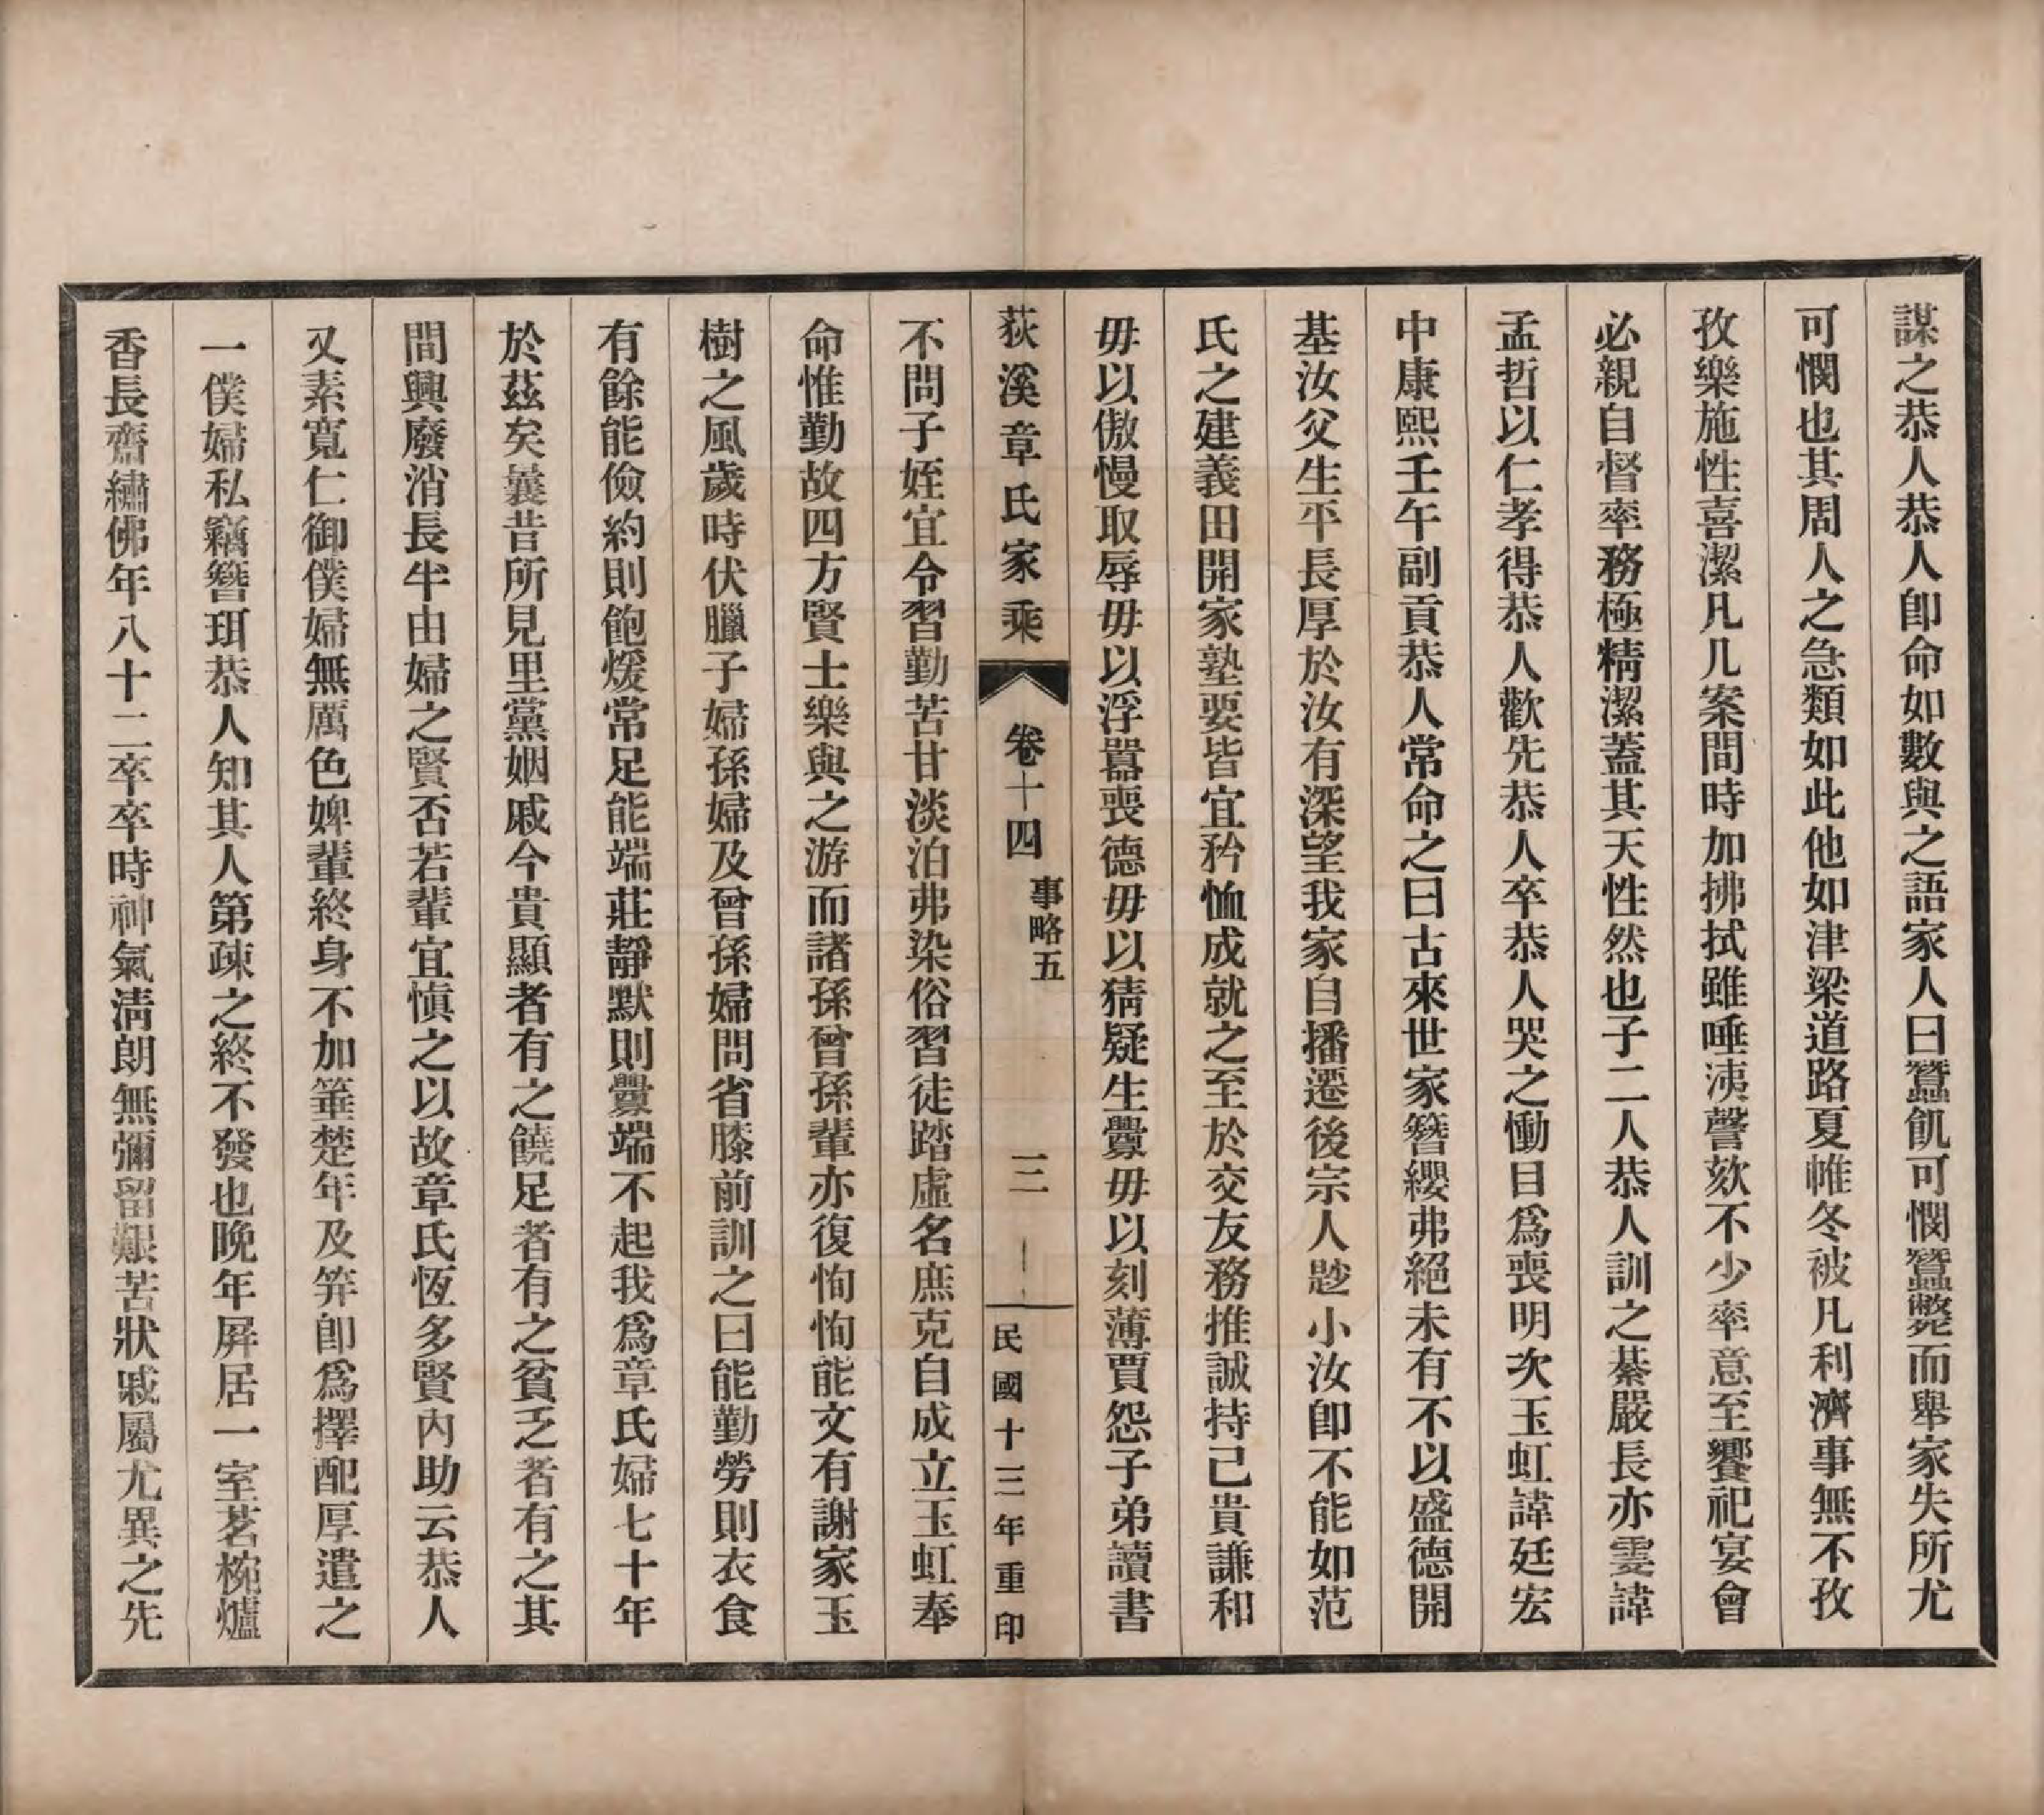 謀之恭人恭人卽命如數與之語家人曰蠶飢可憫蠶斃而舉家失所尤
可憫也其周人之急類如此他如津梁道路夏帷冬被凡利濟事無不孜
孜樂施性喜潔凡几案間時加拂拭雖唾洟謦欬不少率意至饗祀宴會
必親自督率務極精潔蓋其天性然也子二人恭人訓之綦嚴長亦雯諱
孟哲以仁孝得恭人歡先恭人卒恭人哭之慟目爲喪明次玉虹諱廷宏
中康熙壬午副貢恭人常命之曰古來世家簪纓弗絕未有不以盛德開
基汝父生平長厚於汝有深望我家自播遷後宗人尟小汝卽不能如范
氏之建義田開家塾要皆宜矜恤成就之至於交友務推誠持己貴謙和
毋以傲慢取辱毋以浮囂喪德毋以猜疑生釁毋以刻薄賈怨子弟讀書
荻溪章氏家乘 卷十四 事略五 三 民國十三年重印
不問子姪宜令習勤苦甘淡泊弗染俗習徒踏虛名庶克自成立玉虹奉
命惟勤故四方賢士樂與之游而諸孫曾孫輩亦復恂恂能文有謝家玉
樹之風歲時伏臘子婦孫婦及曾孫婦問省膝前訓之曰能勤勞則衣食
有餘能儉約則飽煖常足能端莊靜默則釁端不起我爲章氏婦七十年
於茲矣曩昔所見里黨姻戚今貴顯者有之饒足者有之貧乏者有之其
間興廢消長半由婦之賢否若輩宜愼之以故章氏恆多賢內助云恭人
又素寬仁御僕婦無厲色婢輩終身不加箠楚年及笄卽爲擇配厚遣之
一僕婦私竊簪珥恭人知其人第疎之終不發也晚年屛居一室茗椀爐
香長齋繡佛年八十二卒卒時神氣淸朗無彌留艱苦狀戚屬尤異之先